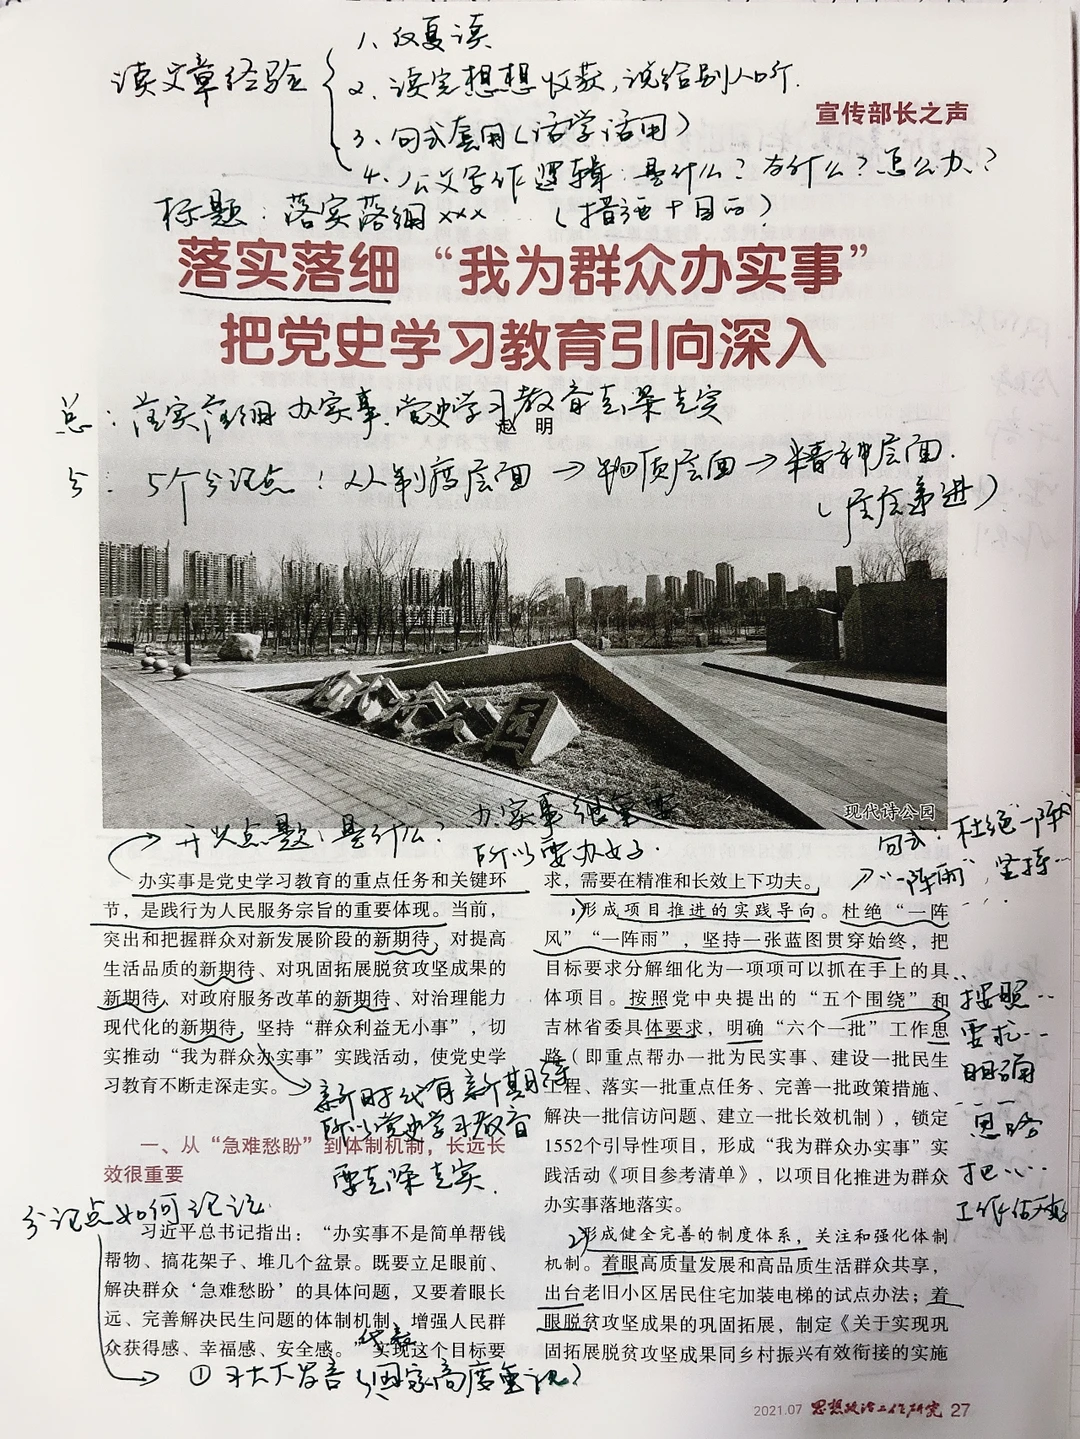 读文章经验
1、反复读
2、读完想想收获,说给别人听.
3、句式套用(活学活用)
4、公文写作逻辑:是什么?为什么?怎么办?
宣传部长之声
标题:落实落细xxx (措施+目的)
落实落细“我为群众办实事”
把党史学习教育引向深入
总:落实落细办实事.党史学习教育走深走实
赵 明
分:5个分论点:从制度层面→物质层面→精神层面.
(层层递进)
现代诗公园
开头点题:是什么?办实事很重要
所以要办好.
办实事是党史学习教育的重点任务和关键环
节,是践行为人民服务宗旨的重要体现。当前,
突出和把握群众对新发展阶段的新期待、对提高
生活品质的新期待、对巩固拓展脱贫攻坚成果的
新期待、对政府服务改革的新期待、对治理能力
现代化的新期待,坚持“群众利益无小事”,切
实推动“我为群众办实事”实践活动,使党史学
习教育不断走深走实。
新时代有新期待
所以党史学习教育
要走深走实.
一、从“急难愁盼”到体制机制,长远长
效很重要
分论点如何论证
习近平总书记指出:“办实事不是简单帮钱
帮物、搞花架子、堆几个盆景。既要立足眼前、
解决群众‘急难愁盼’的具体问题,又要着眼长
远、完善解决民生问题的体制机制,增强人民群
众获得感、幸福感、安全感。”实现这个目标要
①习大大发言(国家高度重视)
求,需要在精准和长效上下功夫。
1)形成项目推进的实践导向。杜绝“一阵
风”“一阵雨”,坚持一张蓝图贯穿始终,把
目标要求分解细化为一项项可以抓在手上的具
体项目。按照党中央提出的“五个围绕”和
吉林省委具体要求,明确“六个一批”工作思
路(即重点帮办一批为民实事、建设一批民生
工程、落实一批重点任务、完善一批政策措施、
解决一批信访问题、建立一批长效机制),锁定
1552个引导性项目,形成“我为群众办实事”实
践活动《项目参考清单》,以项目化推进为群众
办实事落地落实。
2)形成健全完善的制度体系,关注和强化体制
机制。着眼高质量发展和高品质生活群众共享,
出台老旧小区居民住宅加装电梯的试点办法;着
眼脱贫攻坚成果的巩固拓展,制定《关于实现巩
固拓展脱贫攻坚成果同乡村振兴有效衔接的实施
句式:杜绝“一阵风”
“一阵雨”,坚持…
按照…
要求…
明确
思路
把…
工作做好
2021.07 思想政治工作研究 27